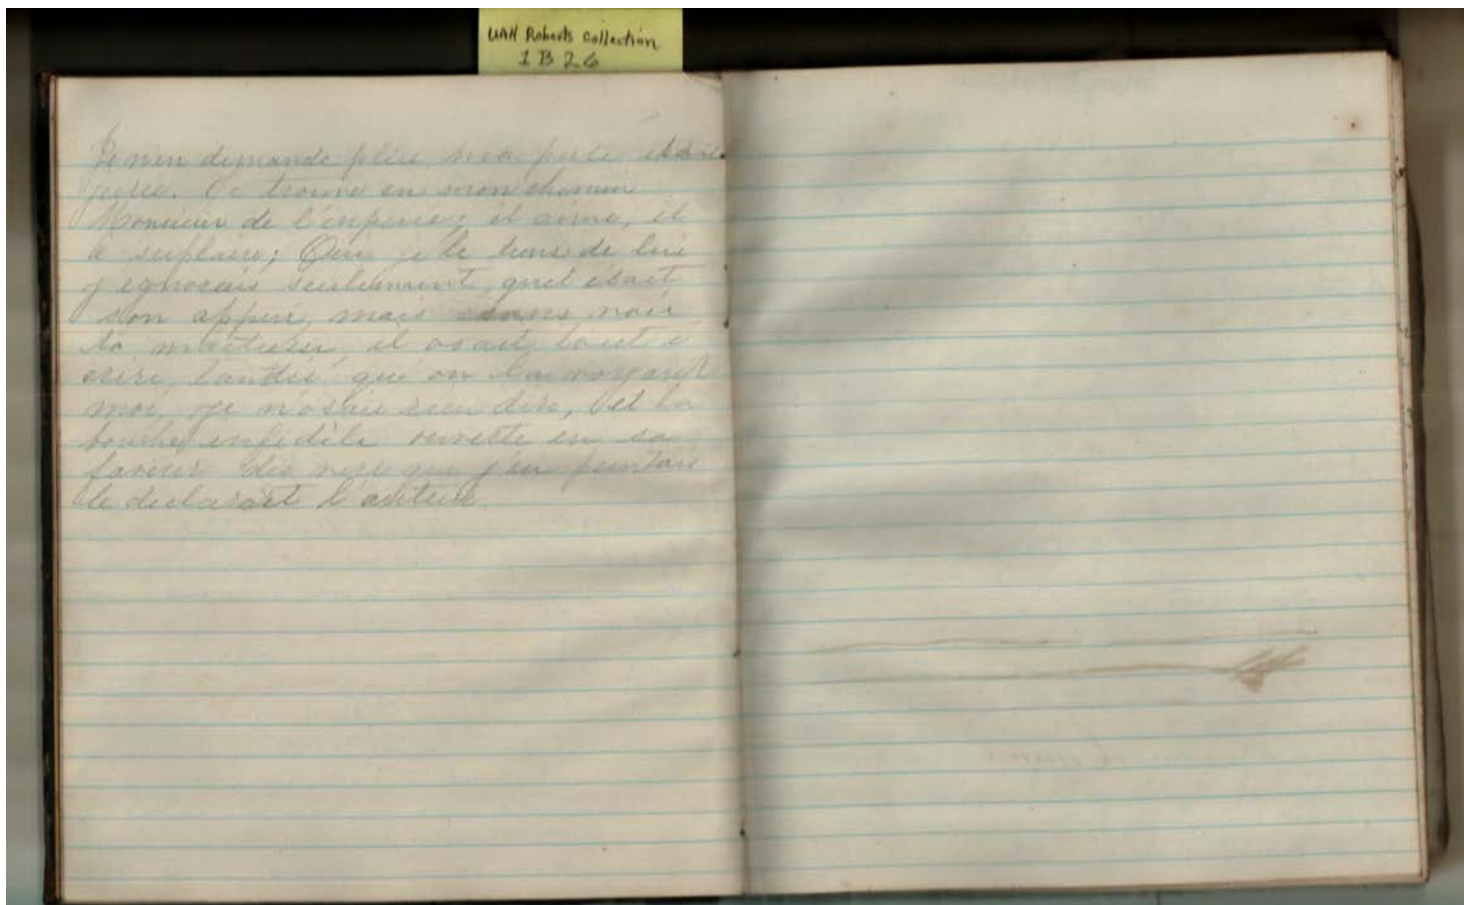 UAH Roberts Collection
1 B 26
Je n'en demande plus, ma perte
jurée. Je trouve en mon chemin
Monsieur de l'empirée; il aime, il
a su plaire; Oui je le tiens de lui
j'ignorais seulement quel était
son appui, mais sans
sa maitresse, il osait tout é
crire, tandis qu'on la voyant
moi, je n'osais rien dire, et la
bouche infidèle ouverte en sa
faveur des vers que j'en
le declarait l'auteur.